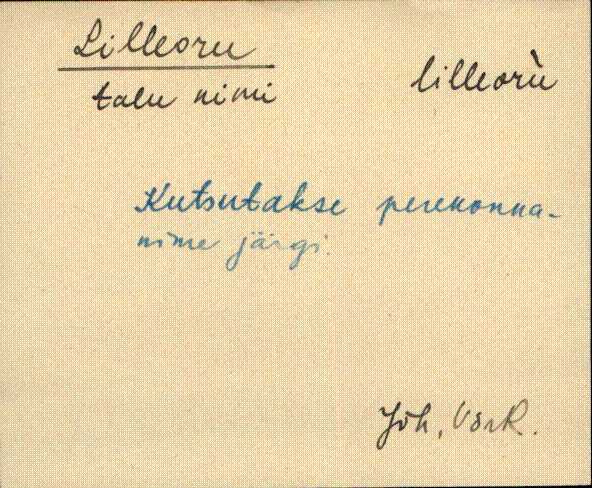 Lilleoru
talu nimi
lilleorù
Kutsutakse perekonna-
nime järgi.
Joh. V